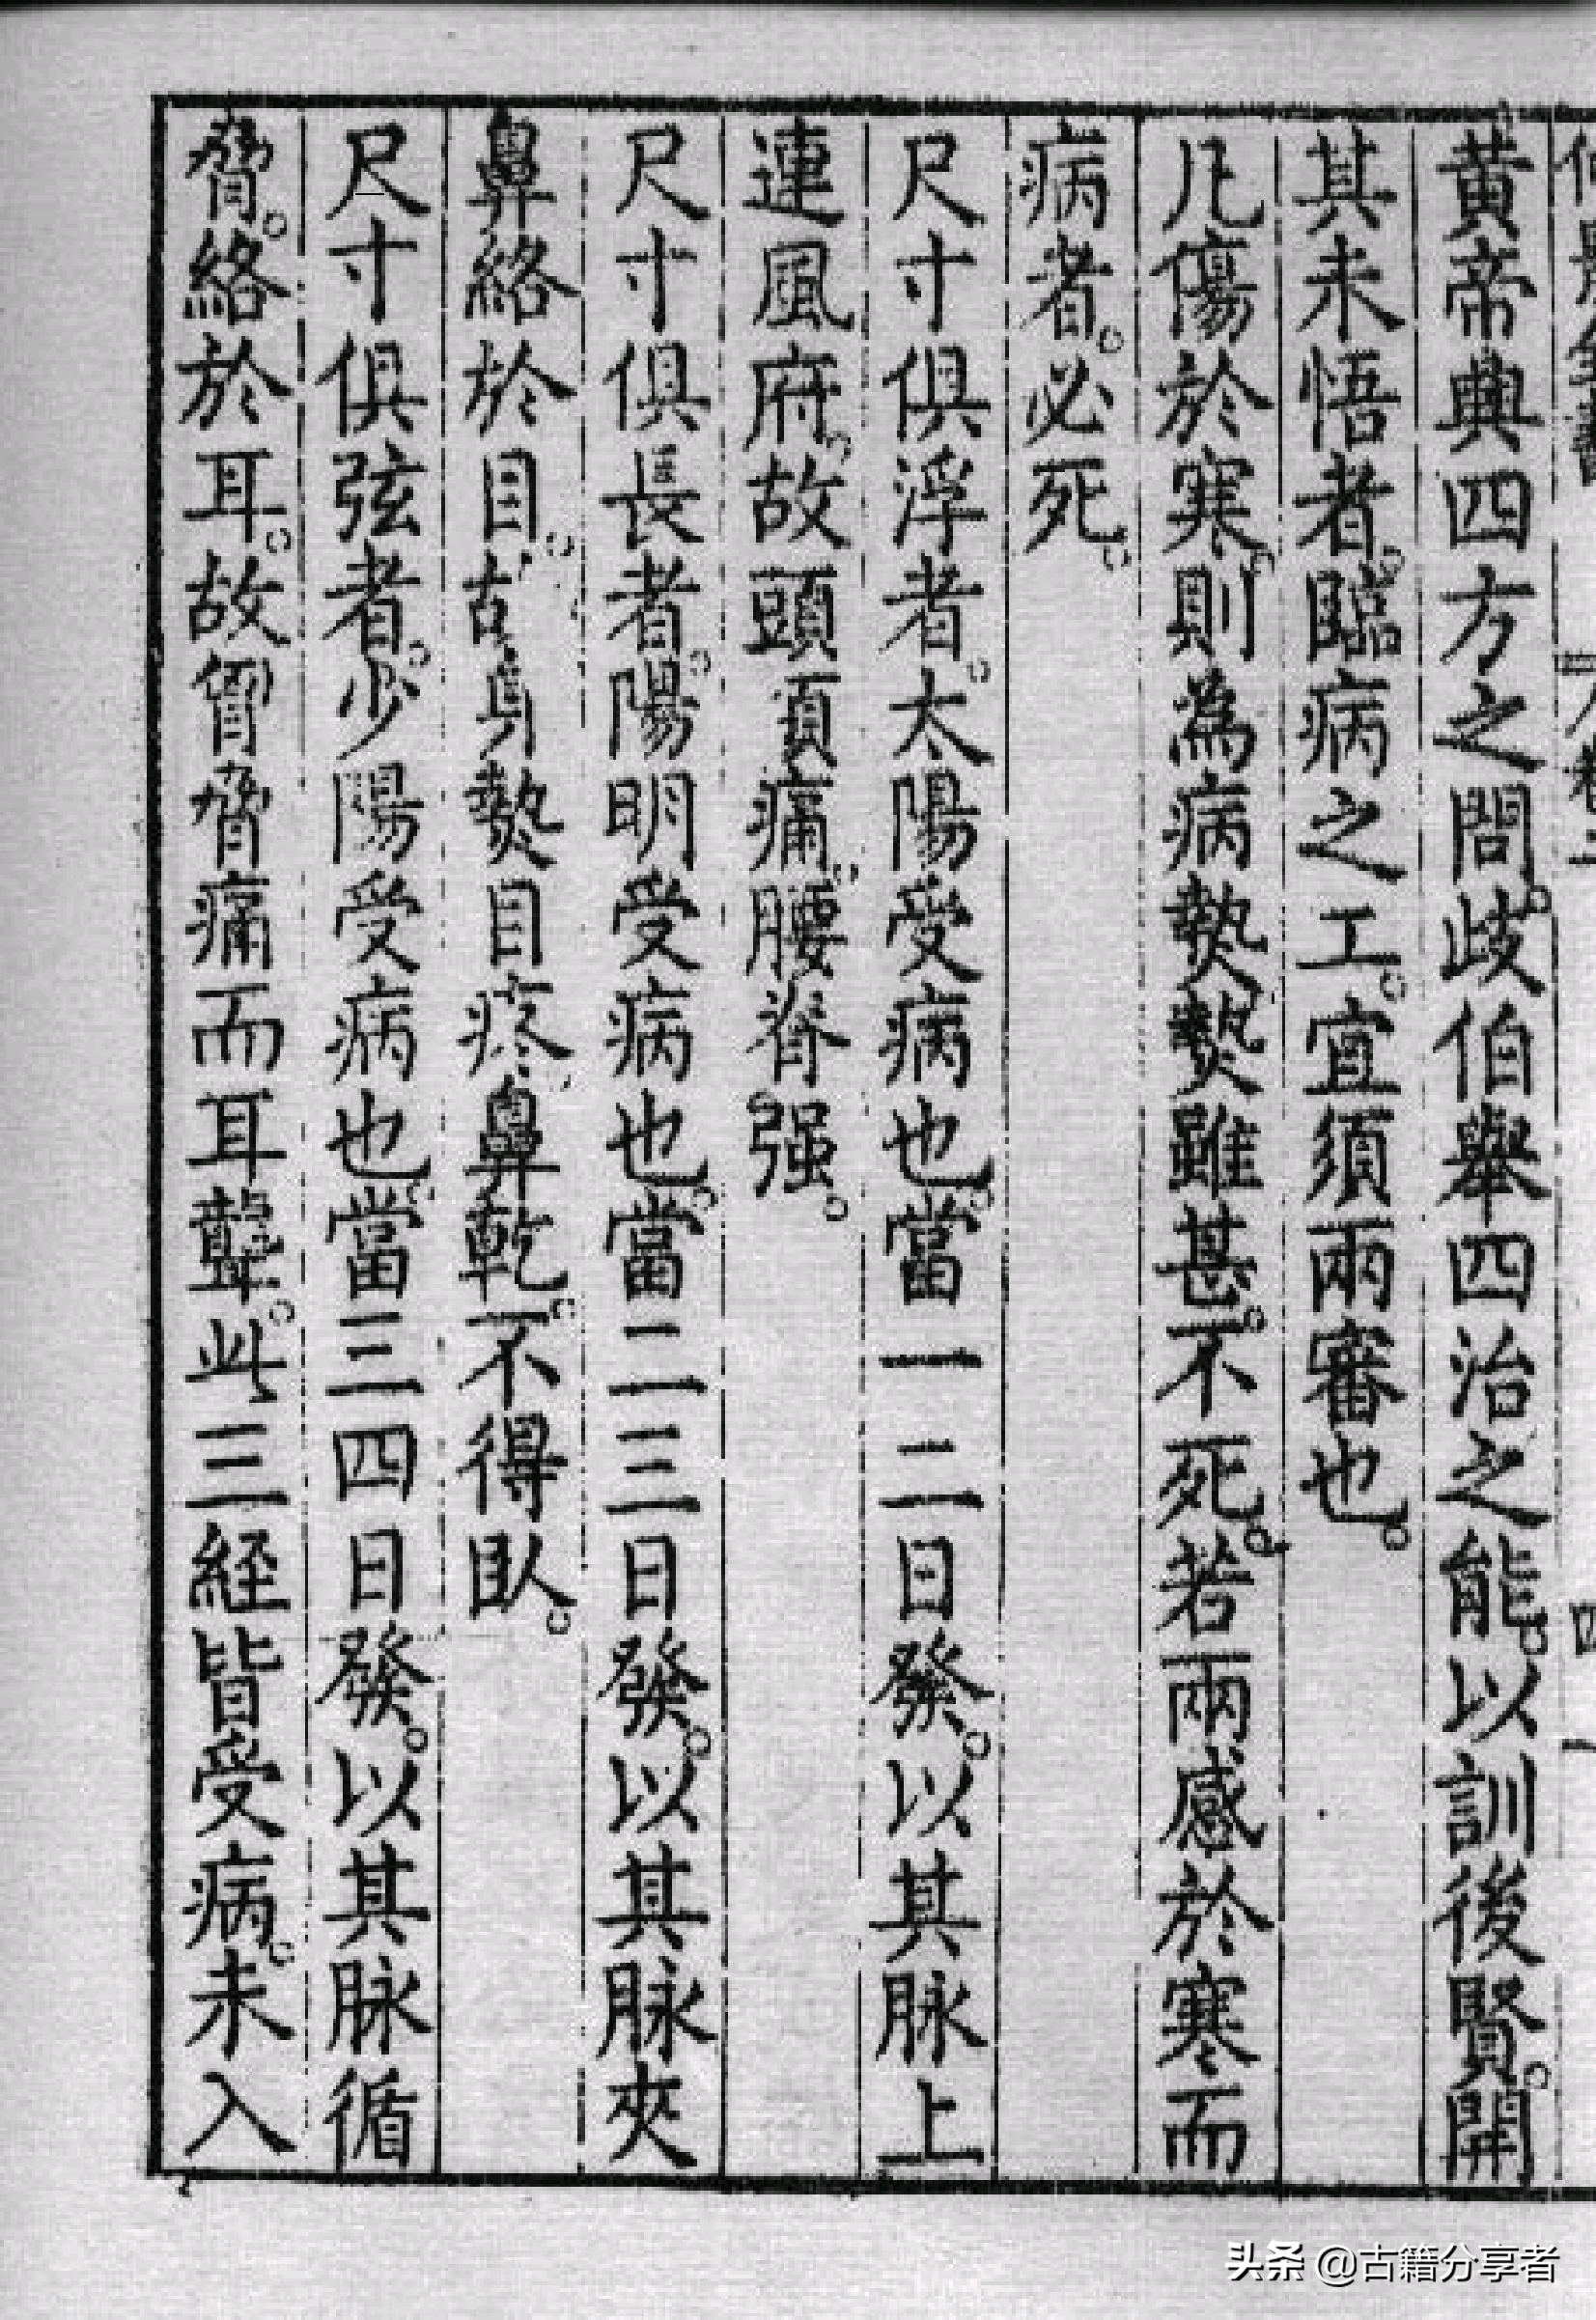 黄帝典四方之問。歧伯舉四治之能。以訓後賢。開
其未悟者。臨病之工。宜須兩審也。
凡傷於寒。則為病熱。熱雖甚。不死。若兩感於寒而
病者。必死。
尺寸俱浮者。太陽受病也。當一二日發。以其脉上
連風府。故頭項痛。腰脊强。
尺寸俱長者。陽明受病也。當二三日發。以其脉夾
鼻絡於目。故身熱目疼鼻乾。不得臥。
尺寸俱弦者。少陽受病也。當三四日發。以其脉循
脅。絡於耳。故胷脅痛而耳聾。此三経皆受病。未入
頭条 @古籍分享者